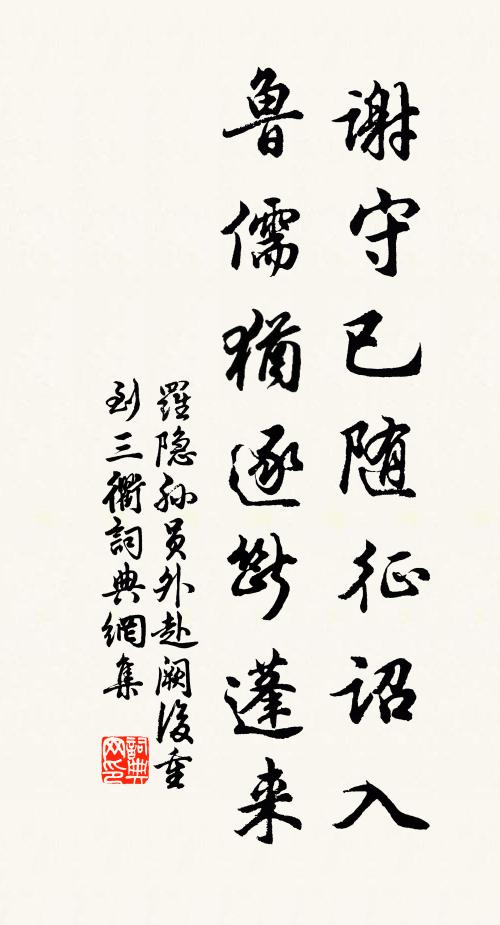 谢守已随征诏入
鲁儒犹逐断蓬来
羅隐孙员外赴阙後重
到三衢詞典網集
詞典网印